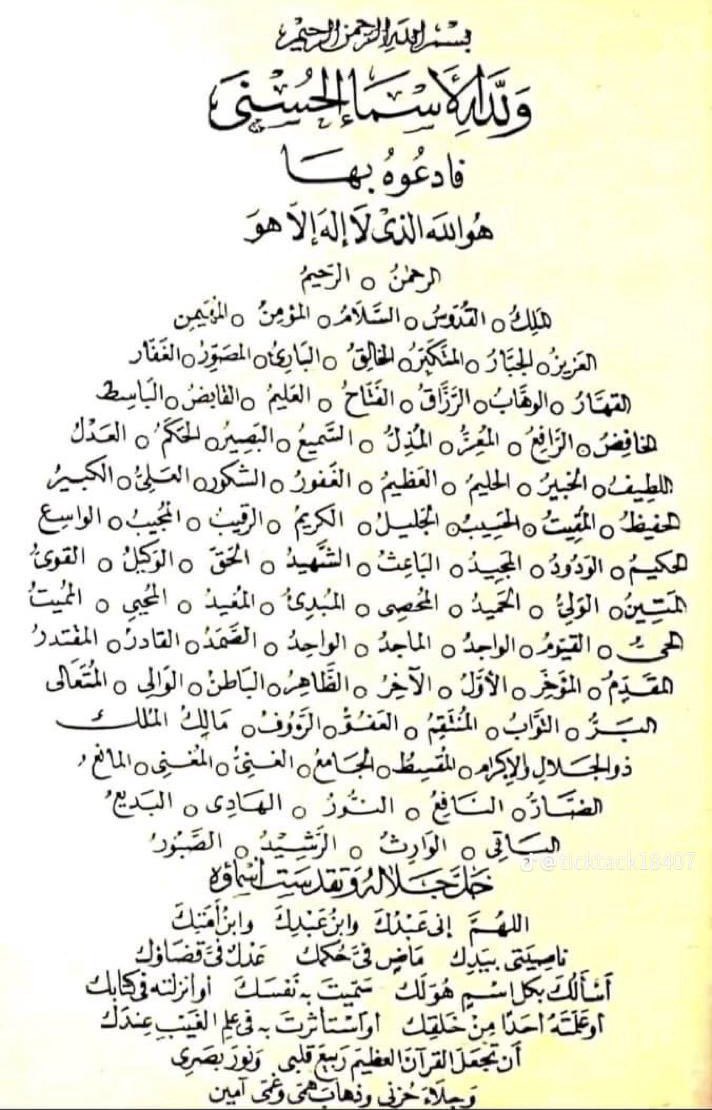 بسم الله الرحمن الرحيم
وَلِلَّهِ الْأَسْمَاءُ الْحُسْنَى
فَادْعُوهُ بِهَا
هُوَ اللهُ الَّذِي لَا إِلَهَ إِلَّا هُوَ
الرحمنُ ○ الرحيمُ
الملِكُ ○ القُدّوسُ ○ السَّلَامُ ○ المؤمِنُ ○ المهَيمِن
العَزيزُ ○ الجبَّارُ ○ المتَكَبّرُ ○ الخالِقُ ○ البَارِئُ ○ المصَوِّرُ ○ الغَفَّار
القهَّارُ ○ الوهَّابُ ○ الرَّزَّاقُ ○ الفَتَّاحُ ○ العَليمُ ○ القَابِضُ ○ البَاسِط
الخافِضُ ○ الرَّافِعُ ○ المُعِزُّ ○ المُذِلُّ ○ السَّمِيعُ ○ البَصِيرُ ○ الحَكَمُ ○ العَدْلُ
اللطِيفُ ○ الخَبيرُ ○ الحليمُ ○ العَظِيمُ ○ الغَفُورُ ○ الشكور ○ العَليُّ ○ الكبيرُ
الحفيظُ ○ المُقِيتُ ○ الحَسِيبُ ○ الجَليلُ ○ الكريمُ ○ الرقيبُ ○ المجُيبُ ○ الواسِع
الحكيمُ ○ الوَدُودُ ○ المَجِيدُ ○ البَاعِثُ ○ الشَّهِيدُ ○ الحَقّ ○ الوَكيلُ ○ القوىُّ
المَتِينُ ○ الوَلِيُّ ○ الحَميدُ ○ المُحْصِى ○ المُبْدِئُ ○ المُعيدُ ○ المُحْيِي ○ المُميتُ
الحىُّ ○ القيّومُ ○ الواجدُ ○ الماجدُ ○ الواحِدُ ○ الصَّمَدُ ○ القادرُ ○ المقْتدرُ
المقَدِّمُ ○ المؤَخِّرُ ○ الأوّلُ ○ الآخِرُ ○ الظَّاهِرُ ○ البَاطنُ ○ الوَالِى ○ المُتَعَالى
البَرُّ ○ التوَّابُ ○ المُنْتَقِمُ ○ العَفوُّ ○ الرَّؤوفُ ○ مَالِكُ المُلك
ذو الجَلالِ والإكرام ○ المُقْسِطُ ○ الجَامِعُ ○ الغنىُّ ○ المُغْنِى ○ المانعُ
الضَّارُّ ○ النَافِعُ ○ النُّورُ ○ الهَادِى ○ البَديعُ
البَاقِى ○ الوَارِثُ ○ الرَّشِيدُ ○ الصَّبُورُ
@ticktack18407
جَلَّ جَلَالُهُ وَتَقَدَّسَتْ أَسْمَاؤُهُ
اللهُمَّ إنى عَبْدُكَ وابنُ عَبْدِكَ وابنُ أَمَتِكَ
نَاصِيَتِى بِيَدِكَ مَاضٍ فىَّ حُكمُكَ عَدْلٌ فىَّ قضَاؤُكَ
أَسْأَلُكَ بِكل اسْمٍ هُوَ لَكَ سَمَّيتَ بِهِ نَفسَكَ أو أنزلتَه فى كتابك
أو عَلّمتَهُ أحَدًا مِنْ خَلقِكَ أو اسْتأثرتَ به فى عِلمِ الغَيْبِ عِندَكَ
أن تجعَلَ القرآنَ العظيمَ رَبيعَ قلبى وَنُورَ بَصَرِى
وَجلاءَ حُزنى وذهابَ هَمّى وغمّى آمين